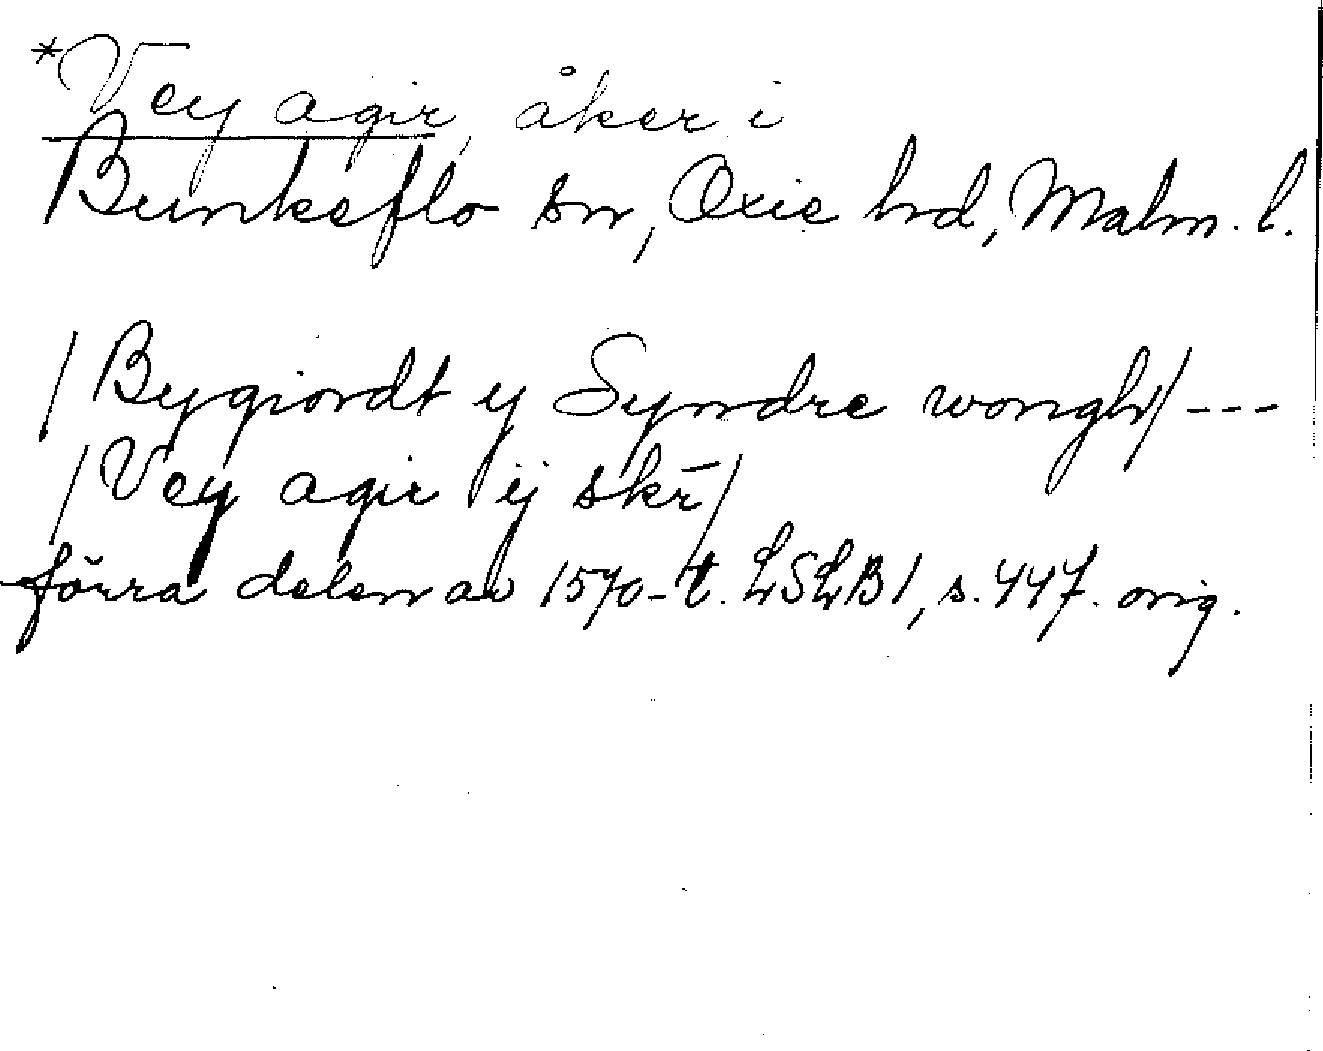 *Vey agir, åker i
Bunkeflo sn, Oxie hd, Malm. l.
/Bygiordt y Syndre wongh/ ---
/Vey agir ij skr̄/
förra delen av 1570-t. LSLB1, s. 447. orig.